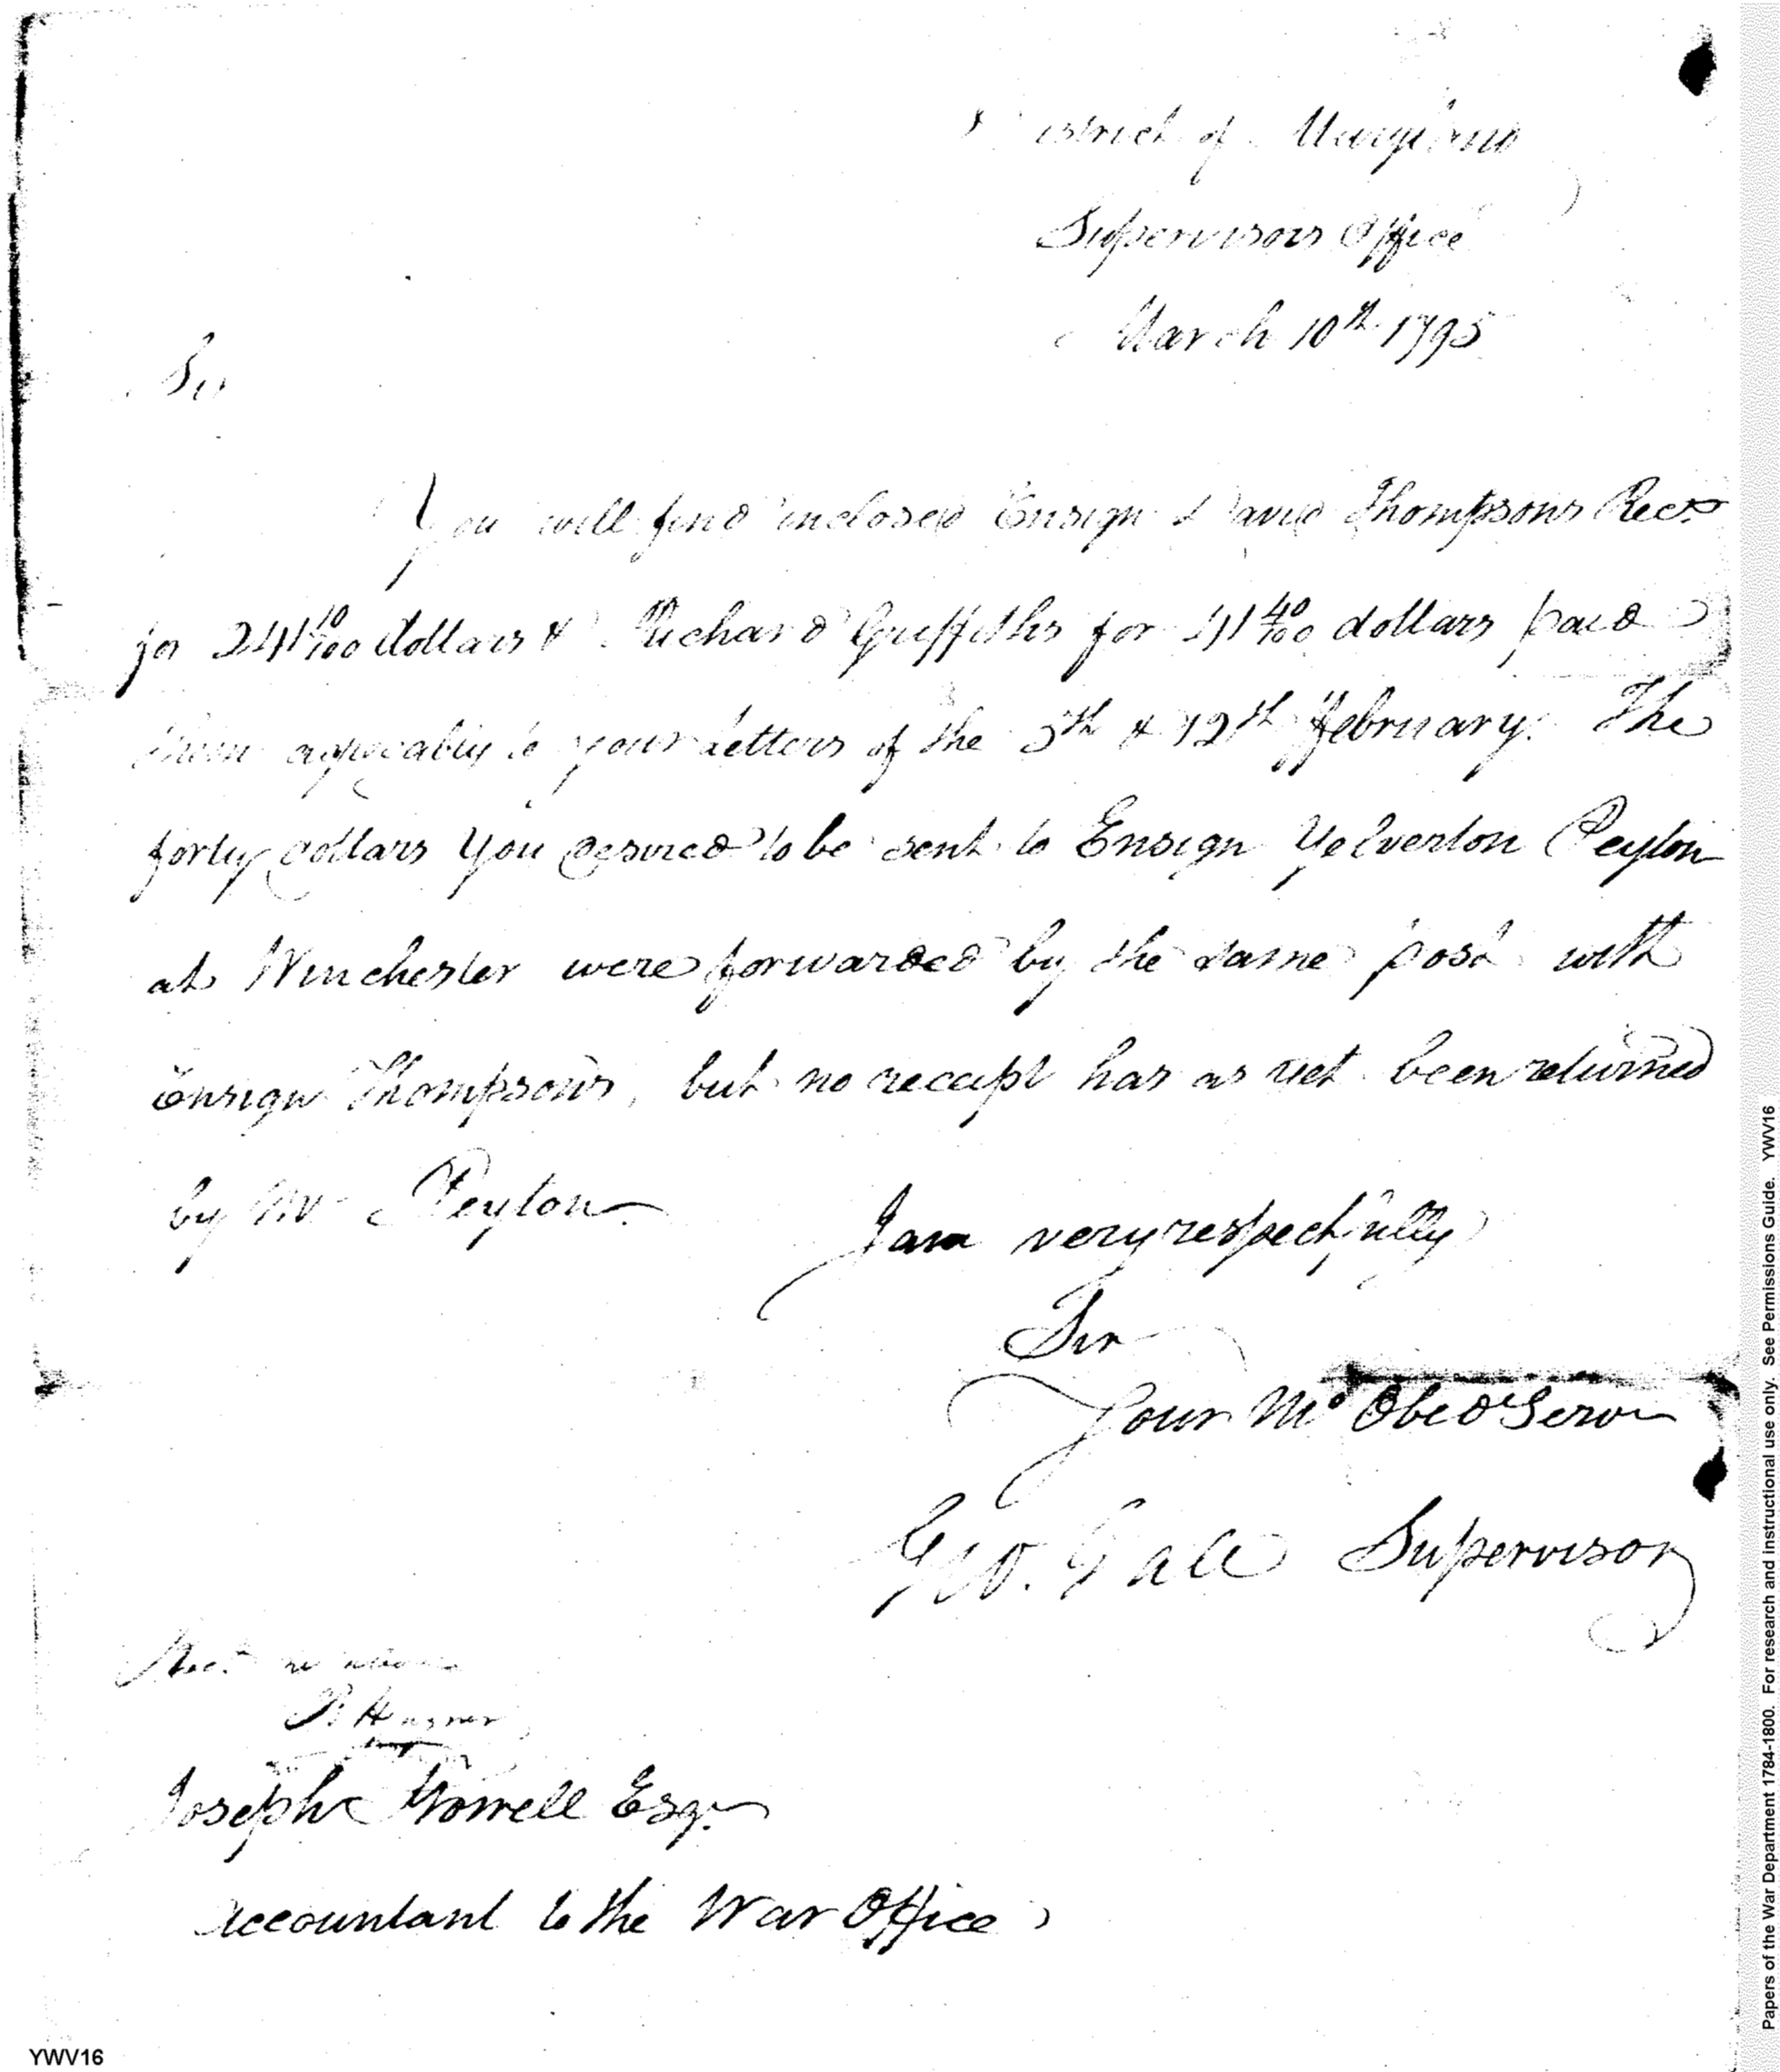 District of Maryland
Supervisors Office
March 10th 1795
Sir
You will find inclosed Ensign David Thompsons Rect
for 241 10/100 dollars & Richard Griffiths for 41 40/100 dollars paid
them agreeably to your Letters of the 5th & 12th February. The
forty dollars you desired to be sent to Ensign Yelverton Peyton
at Winchester were forwarded by the same post with
Ensign Thompson's, but no receipt has as yet been returned
by Mr Peyton.
I am very respectfully
Sir
Your Mo Obed Serv
Geo. Gale Supervisor
P Hagner
Joseph Howell Esqr.
Accountant to the War Office
YWV16
Papers of the War Department 1784-1800. For research and instructional use only. See Permissions Guide. YWV16